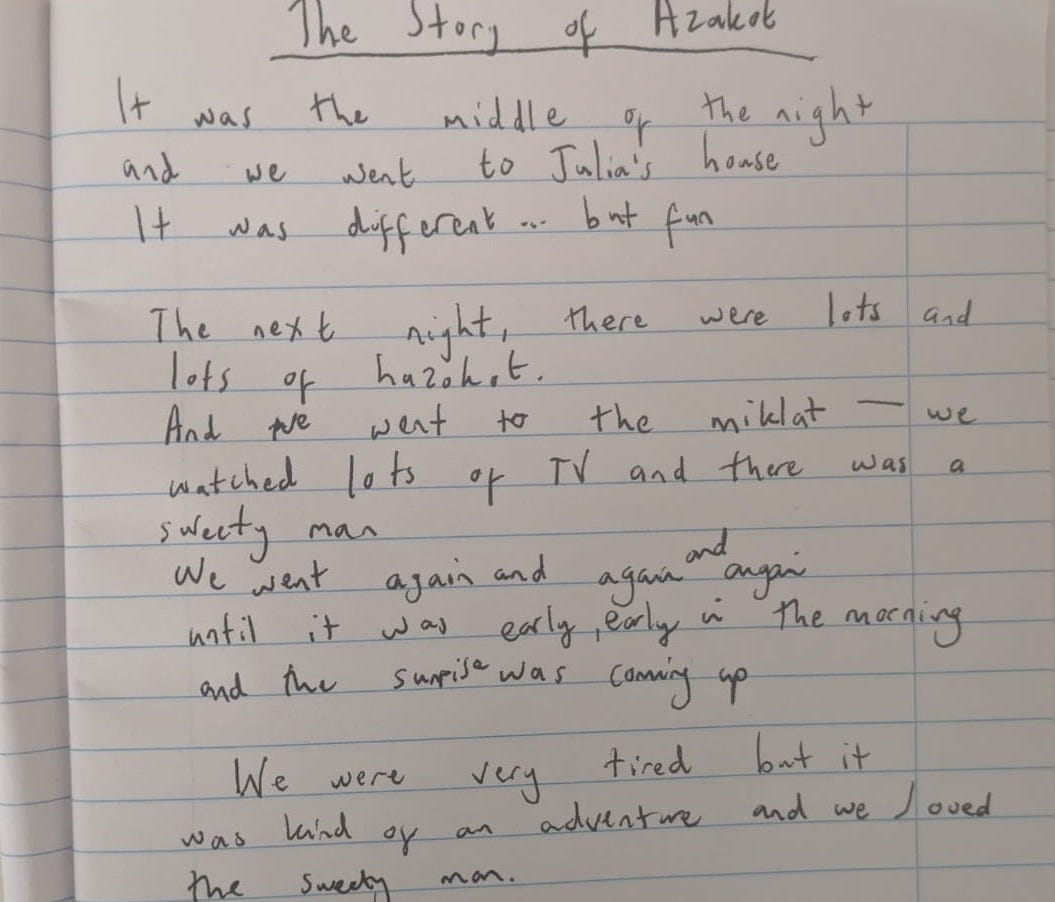 The Story of Azakot
It was the middle of the night
and we went to Julia's house
It was different... but fun
The next night, there were lots and
lots of hazokot.
And we went to the miklat — we
watched lots of TV and there was a
sweety man
We went again and again and angai
until it was early, early in the morning
and the sunrise was coming up
We were very tired but it
was kind of an adventure and we loved
the sweety man.